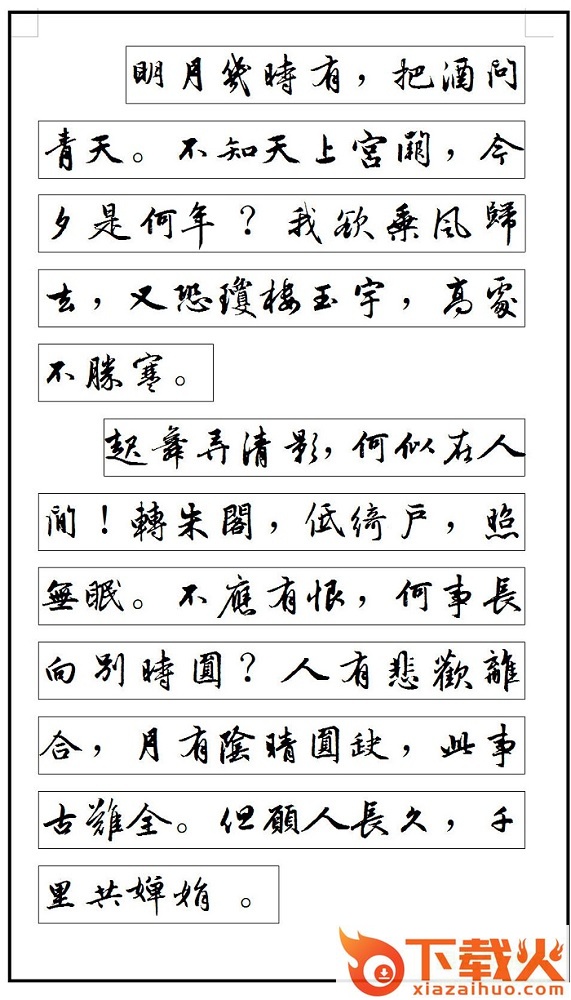 明月幾時有，把酒問
青天。不知天上宮闕，今
夕是何年？我欲乘风歸
去，又恐瓊楼玉宇，高處
不勝寒。
起舞弄清影，何似在人
間！轉朱閣，低綺戸，照
無眠。不應有恨，何事長
向别時圓？人有悲歡離
合，月有陰晴圓缺，此事
古難全。但願人長久，千
里共嬋娟。
下载火
xiazaihuo.com